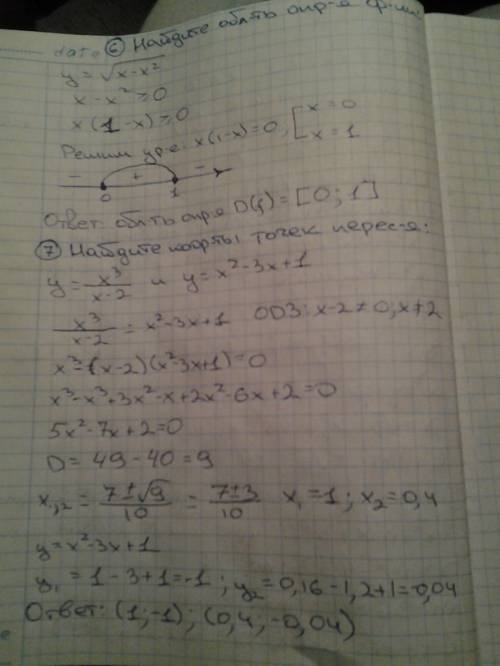 date ⑥ Найдите обл-ть опр-я ф-ции
y = √(x-x²)
x - x² ≥ 0
x(1-x) ≥ 0
Решим ур-е: x(1-x)=0, [x = 0
x = 1
- + -
0 1
Ответ: обл-ть опр-я D(y) = [0; 1]
⑦ Найдите коорд-ты точек перес-я:
y = x³/(x-2) и y = x²-3x+1
x³/(x-2) = x²-3x+1 ОДЗ: x-2≠0; x≠2
x³-(x-2)(x²-3x+1)=0
x³-x³+3x²-x+2x²-6x+2=0
5x²-7x+2=0
D = 49-40=9
x₁,₂ = (7±√9)/10 = (7±3)/10 x₁=1; x₂=0,4
y = x²-3x+1
y₁ = 1-3+1=-1; y₂=0,16-1,2+1=-0,04
Ответ: (1;-1); (0,4; -0,04)